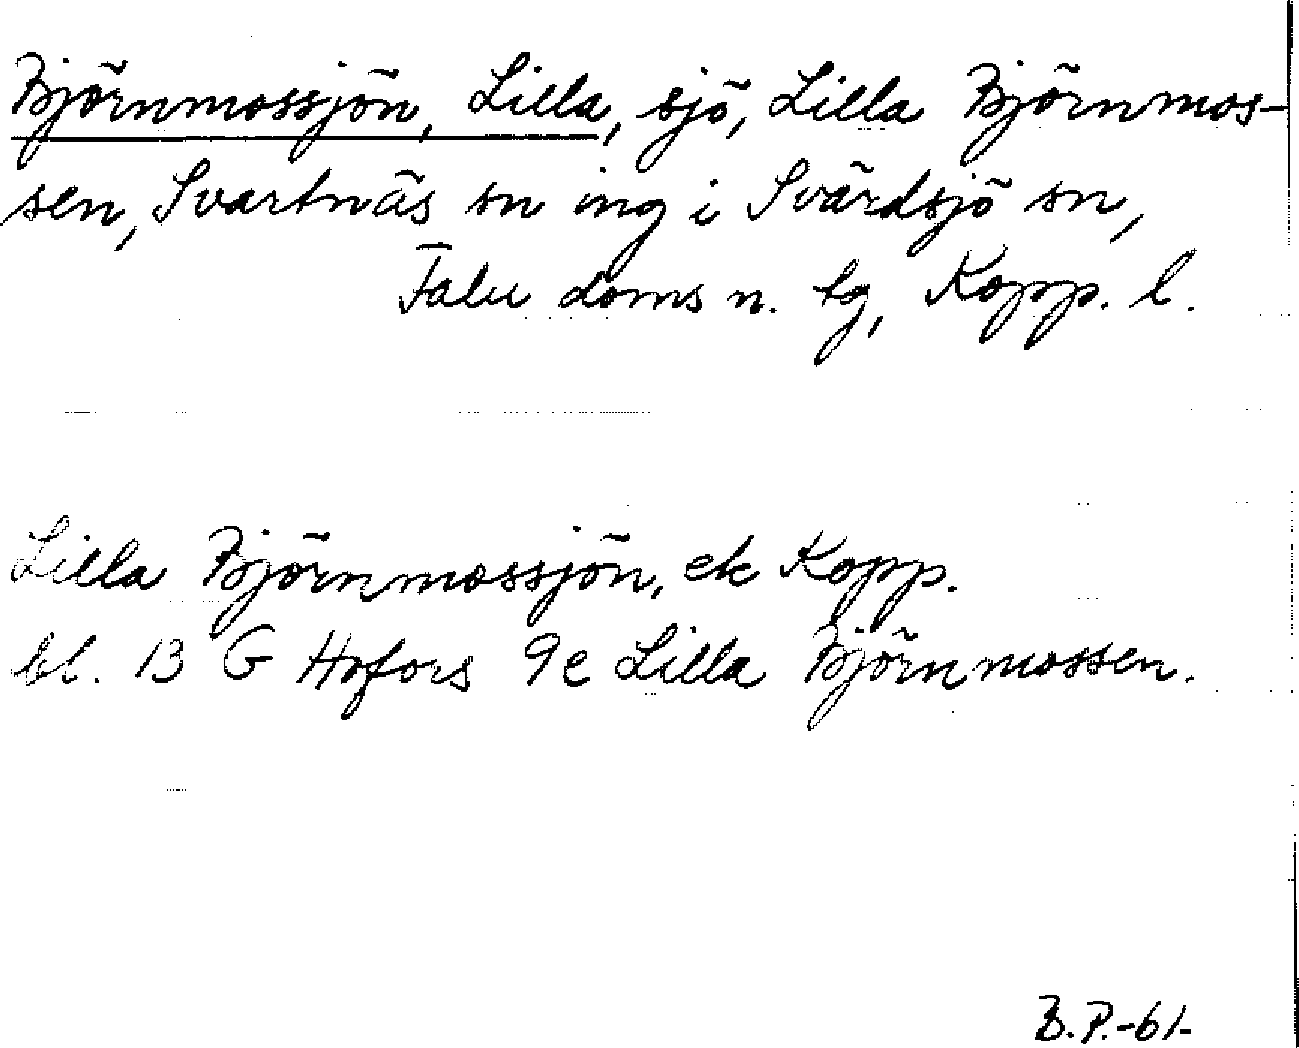 Björnmossjön, Lilla, sjö, Lilla Björnmos-
sen, Svartnäs sn ing i Svärdsjö sn,
Falu doms n. tg, Kopp. l.
Lilla Björnmossjön, ek Kopp.
bl. 13 G Hofors 9e Lilla Björnmossen.
B.P.-61-